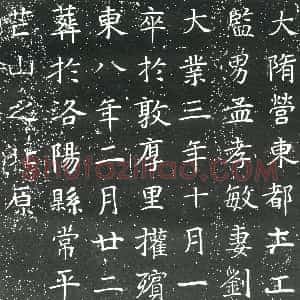 大隋營東都土工
監男孟孝敏妻劉
大業三年十月一
卒於敦厚里權殯
東八年二月廿二
葬於洛陽縣常平
芒山之北原
Shufaziliao.com